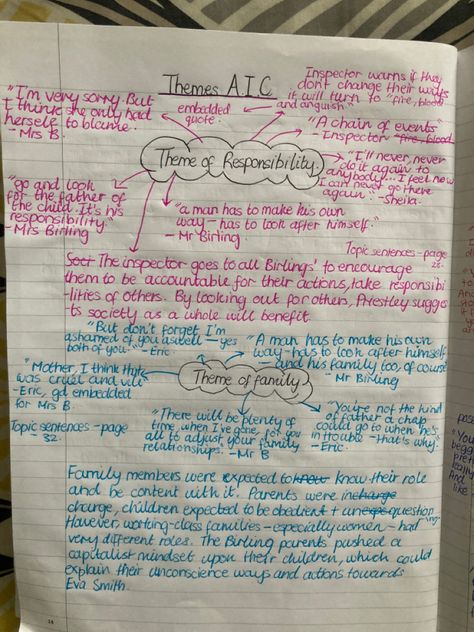 Themes A.I.C
Inspector warns if they
don't change their ways
it will turn to "fire, blood
and anguish".
embedded
quote.
"I'm very sorry. But
I think she only had
herself to blame."
- Mrs B.
"A chain of events"
- Inspector
Theme of Responsibility.
"I'll never, never
do it again to
anybody... I feel now
I can never go there
again." - Sheila.
"go and look
for the father of
the child. It's his
responsibility."
- Mrs Birling
"a man has to make his own
way - has to look after himself."
- Mr Birling
Topic sentences - page
The inspector goes to all Birlings' to encourage
them to be accountable for their actions, take responsibi
-lities of others. By looking out for others, Priestley sugges
ts society as a whole will benefit.
"But don't forget I'm
ashamed of you as well - yes
both of you." - Eric
"A man has to make his own
way - has to look after himself
- and his family too, of course
Mr Birling
"Mother, I think that
was cruel and vile"
- Eric, gd embedded
for Mrs B.
Theme of family
"There will be plenty of
time, when I've gone, for you
all to adjust your family
relationships." - Mr B
"You're not the kind
of father a chap
could go to when he's
in trouble - that's why."
- Eric.
Topic sentences - page
- 32.
Family members were expected to know know their role
and be content with it. Parents were in charge
charge, children expected to be obedient + unquestion
ing.
However, working-class families - especially women - had
very different roles. The Birling parents pushed a
capitalist mindset upon their children, which could
explain their unconscience ways and actions towards
Eva Smith.